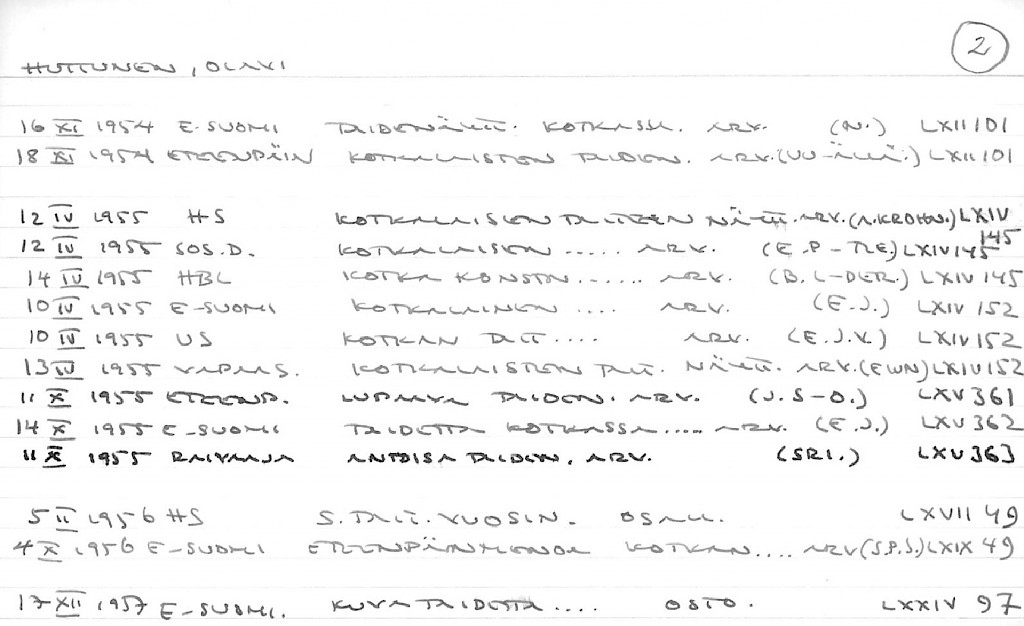 2
HUTTUNEN, OLAVI
16 XI 1954 E-SUOMI TAIDENÄYTT. KOTKASSA. ARV. (N.) LXII 101
18 XI 1954 ETEENPÄIN KOTKALAISTEN TAIDEN. ARV. (UU-ÄLLÄ.) LXII 101
12 IV 1955 HS KOTKALAISTEN TAIT.EN NÄYTT. ARV. (A. KROHN.) LXIV 145
12 IV 1955 SOS.D. KOTKALAISTEN ..... ARV. (E. P-TLE.) LXIV 145
14 IV 1955 HBL KOTKA KONSTN...... ARV. (B. L-DER.) LXIV 145
10 IV 1955 E-SUOMI KOTKALAINEN .... ARV. (E.J.) LXIV 152
10 IV 1955 US KOTKAN TAIT.... ARV. (E.J.V.) LXIV 152
13 IV 1955 VAPAA S. KOTKALAISTEN TAIT. NÄYTT. ARV. (EWN) LXIV 152
11 X 1955 ETEENP. LUPAAVA TAIDEN. ARV. (U.S-O.) LXV 361
14 X 1955 E-SUOMI TAIDETTA KOTKASSA..... ARV. (E.J.) LXV 362
11 X 1955 RAIVAAJA ANTOISA TAIDEN. ARV. (SRI.) LXV 363
5 II 1956 HS S.TAIT.VUOSIN. OSALL. LXVII 49
4 X 1956 E-SUOMI ETEENPÄINMENOA KOTKAN.... ARV (S.P.S.) LXIX 49
17 XII 1957 E-SUOMI. KUVATAIDETTA .... OSTO. LXXIV 97